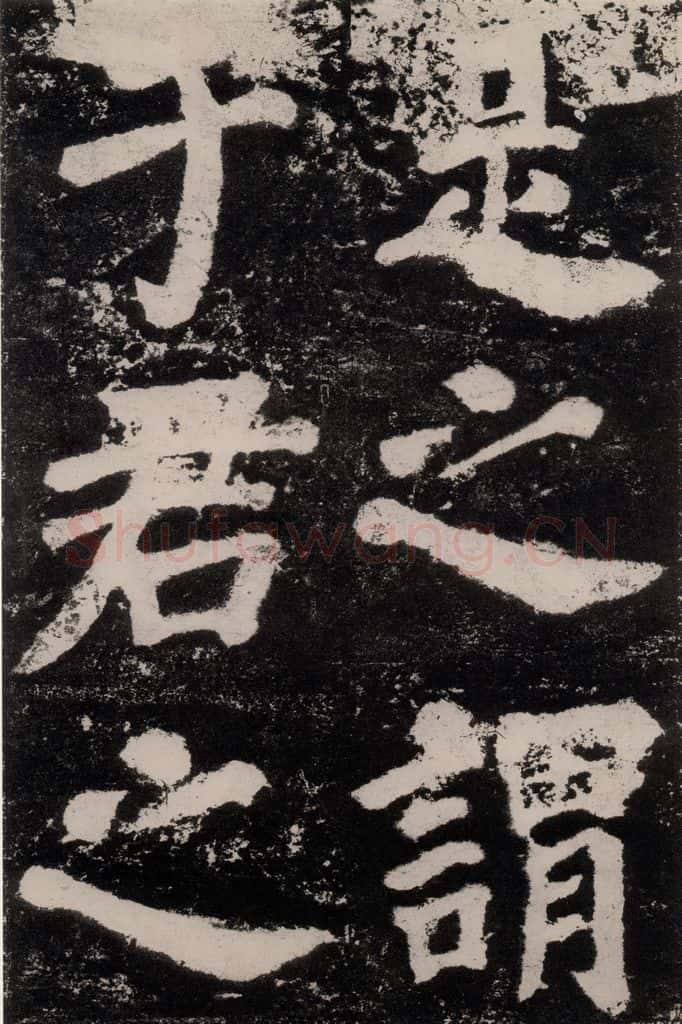 是之謂
于君之
Shufawang.CN